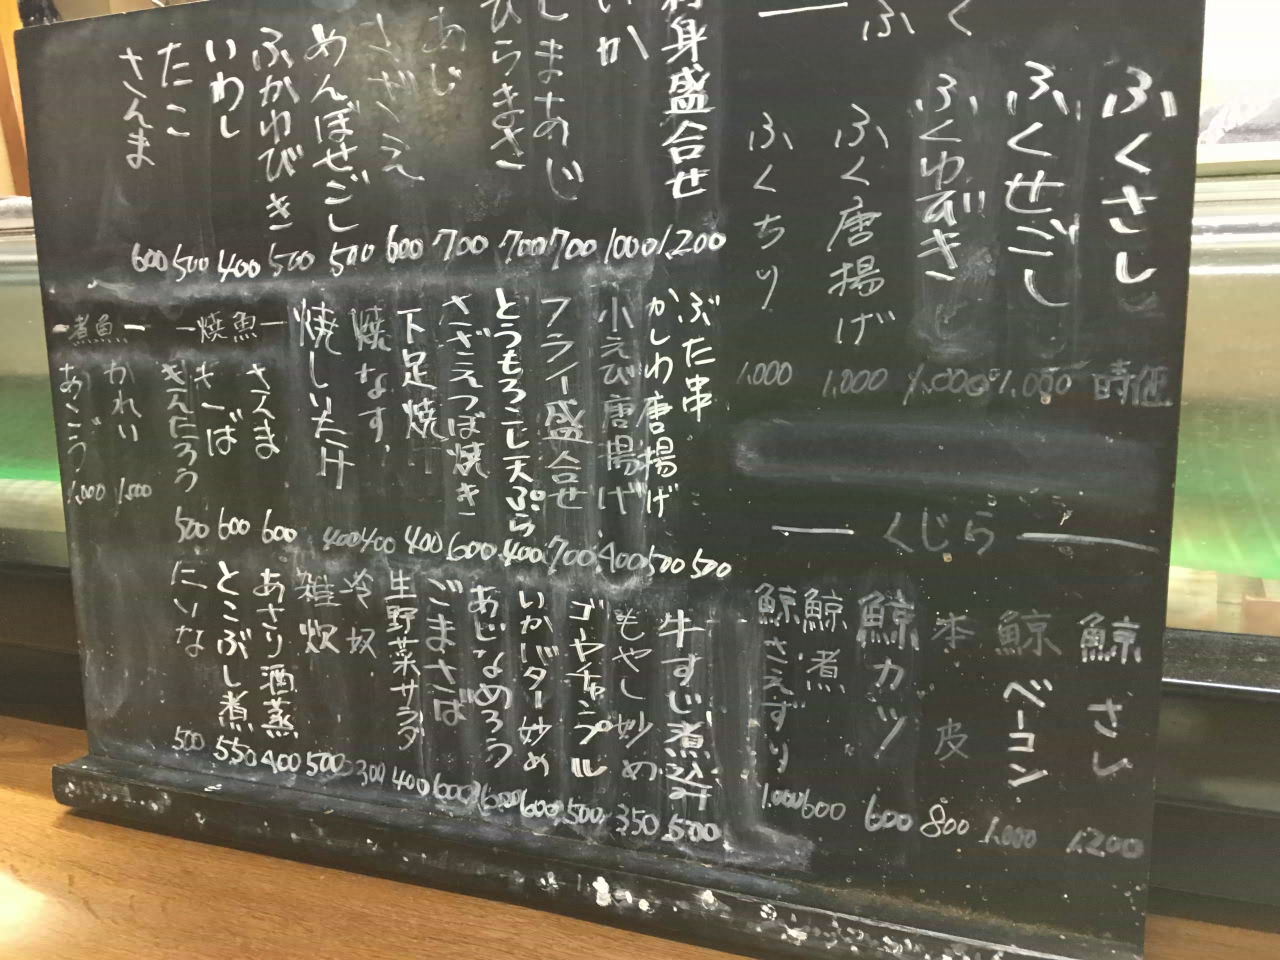 ー ふく
ふくさし 時価
ふくせごし 1.000
ふくゆびき 1.000
ふく唐揚げ 1.000
ふくちり 1.000
ー くじら ー
鯨さし 1.200
鯨ベーコン 1.000
本皮 800
鯨カツ 600
鯨煮 600
鯨さえずり 1.000
身盛合せ 1.200
いか 1000
しまあじ 700
ひらまさ 700
あじ 700
さざえ 600
めんぼせごし 500
ふかゆびき 500
いわし 400
たこ 500
さんま 600
ぶた串 500
かしわ唐揚げ 500
小えび唐揚げ 400
フライ盛合せ 700
とうもろこし天ぷら 400
さざえつぼ焼き 600
下足焼 400
焼なす 400
焼しいたけ 400
ー焼魚ー
さんま 600
さば 600
きんたろう 500
ー煮魚ー
かれい 1.500
あこう 1.000
牛すじ煮込み 500
もやし炒め 350
ゴーヤチャンプル 500
いかバター炒め 600
あじなめろう 600
ごまさば 600
生野菜サラダ 400
冷奴 300
雑炊 500
あさり酒蒸 400
とこぶし煮 550
にいな 500